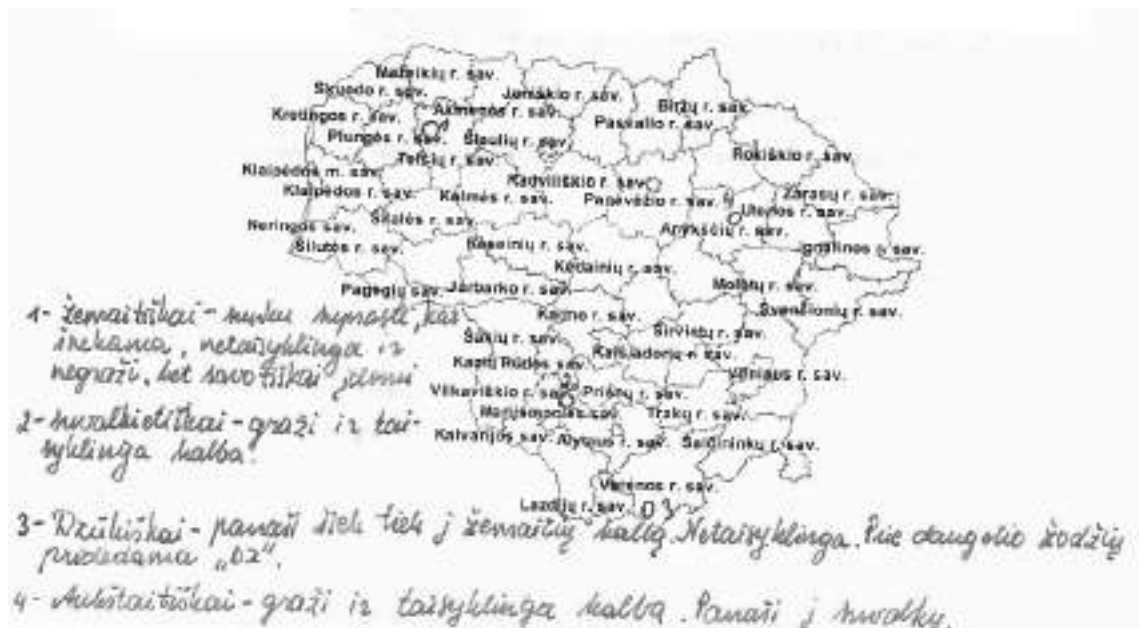 Mažeikių r. sav.
Skuodo r. sav.
Joniškio r. sav.
Akmenės r. sav.
Biržų r. sav.
Kretingos r. sav.
Pasvalio r. sav.
Plungės r. sav.
Šiaulių r. sav.
Telšių r. sav.
Rokiškio r. sav.
Klaipėdos m. sav.
Radviliškio r. sav.
Klaipėdos r. sav.
Kelmės r. sav.
Panevėžio r. sav.
4
Zarasų r. sav.
Utenos r. sav.
Neringos sav.
Šilalės r. sav.
Anykščių r. sav.
Šilutės r. sav.
Raseinių r. sav.
Ignalinos r. sav.
Kėdainių r. sav.
Pagėgių sav.
Jurbarko r. sav.
Molėtų r. sav.
Švenčionių r. sav.
Kauno r. sav.
Širvintų r. sav.
Šakių r. sav.
Kaišiadorių r. sav.
Kazlų Rūdos sav.
Vilniaus r. sav.
Vilkaviškio r. sav.
2
Prienų r. sav.
Marijampolės sav.
Trakų r. sav.
Kalvarijos sav.
Alytaus r. sav.
Šalčininkų r. sav.
Varėnos r. sav.
Lazdijų r. sav.
3
1- žemaitiškai - sunku suprasti, kas
šnekama, netaisyklinga ir
negraži, bet savotiškai įdomi
2- suvalkietiškai - graži ir tai-
syklinga kalba.
3- Dzūkiškai - panaši šiek tiek į žemaičių kalbą. Netaisyklinga. Prie daugelio žodžių
pridedama „DZ“.
4- Aukštaitiškai - graži ir taisyklinga kalba. Panaši į suvalkų.